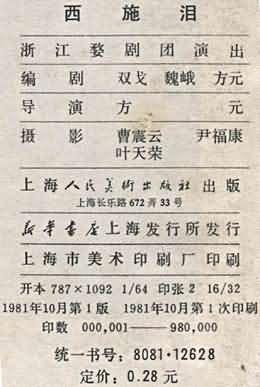 西施泪
浙江婺剧团演出
编剧 双戈 魏峨 方元
导演 方元
摄影 曹震云 尹福康
叶天荣
上海人民美術出版社出版
上海长乐路672弄33号
新华書店上海发行所发行
上海市美术印刷厂印刷
开本 787×1092 1/64 印张 2 16/32
1981年10月第1版 1981年10月第1次印刷
印数 000,001——980,000
统一书号：8081·12628
定价：0.28 元